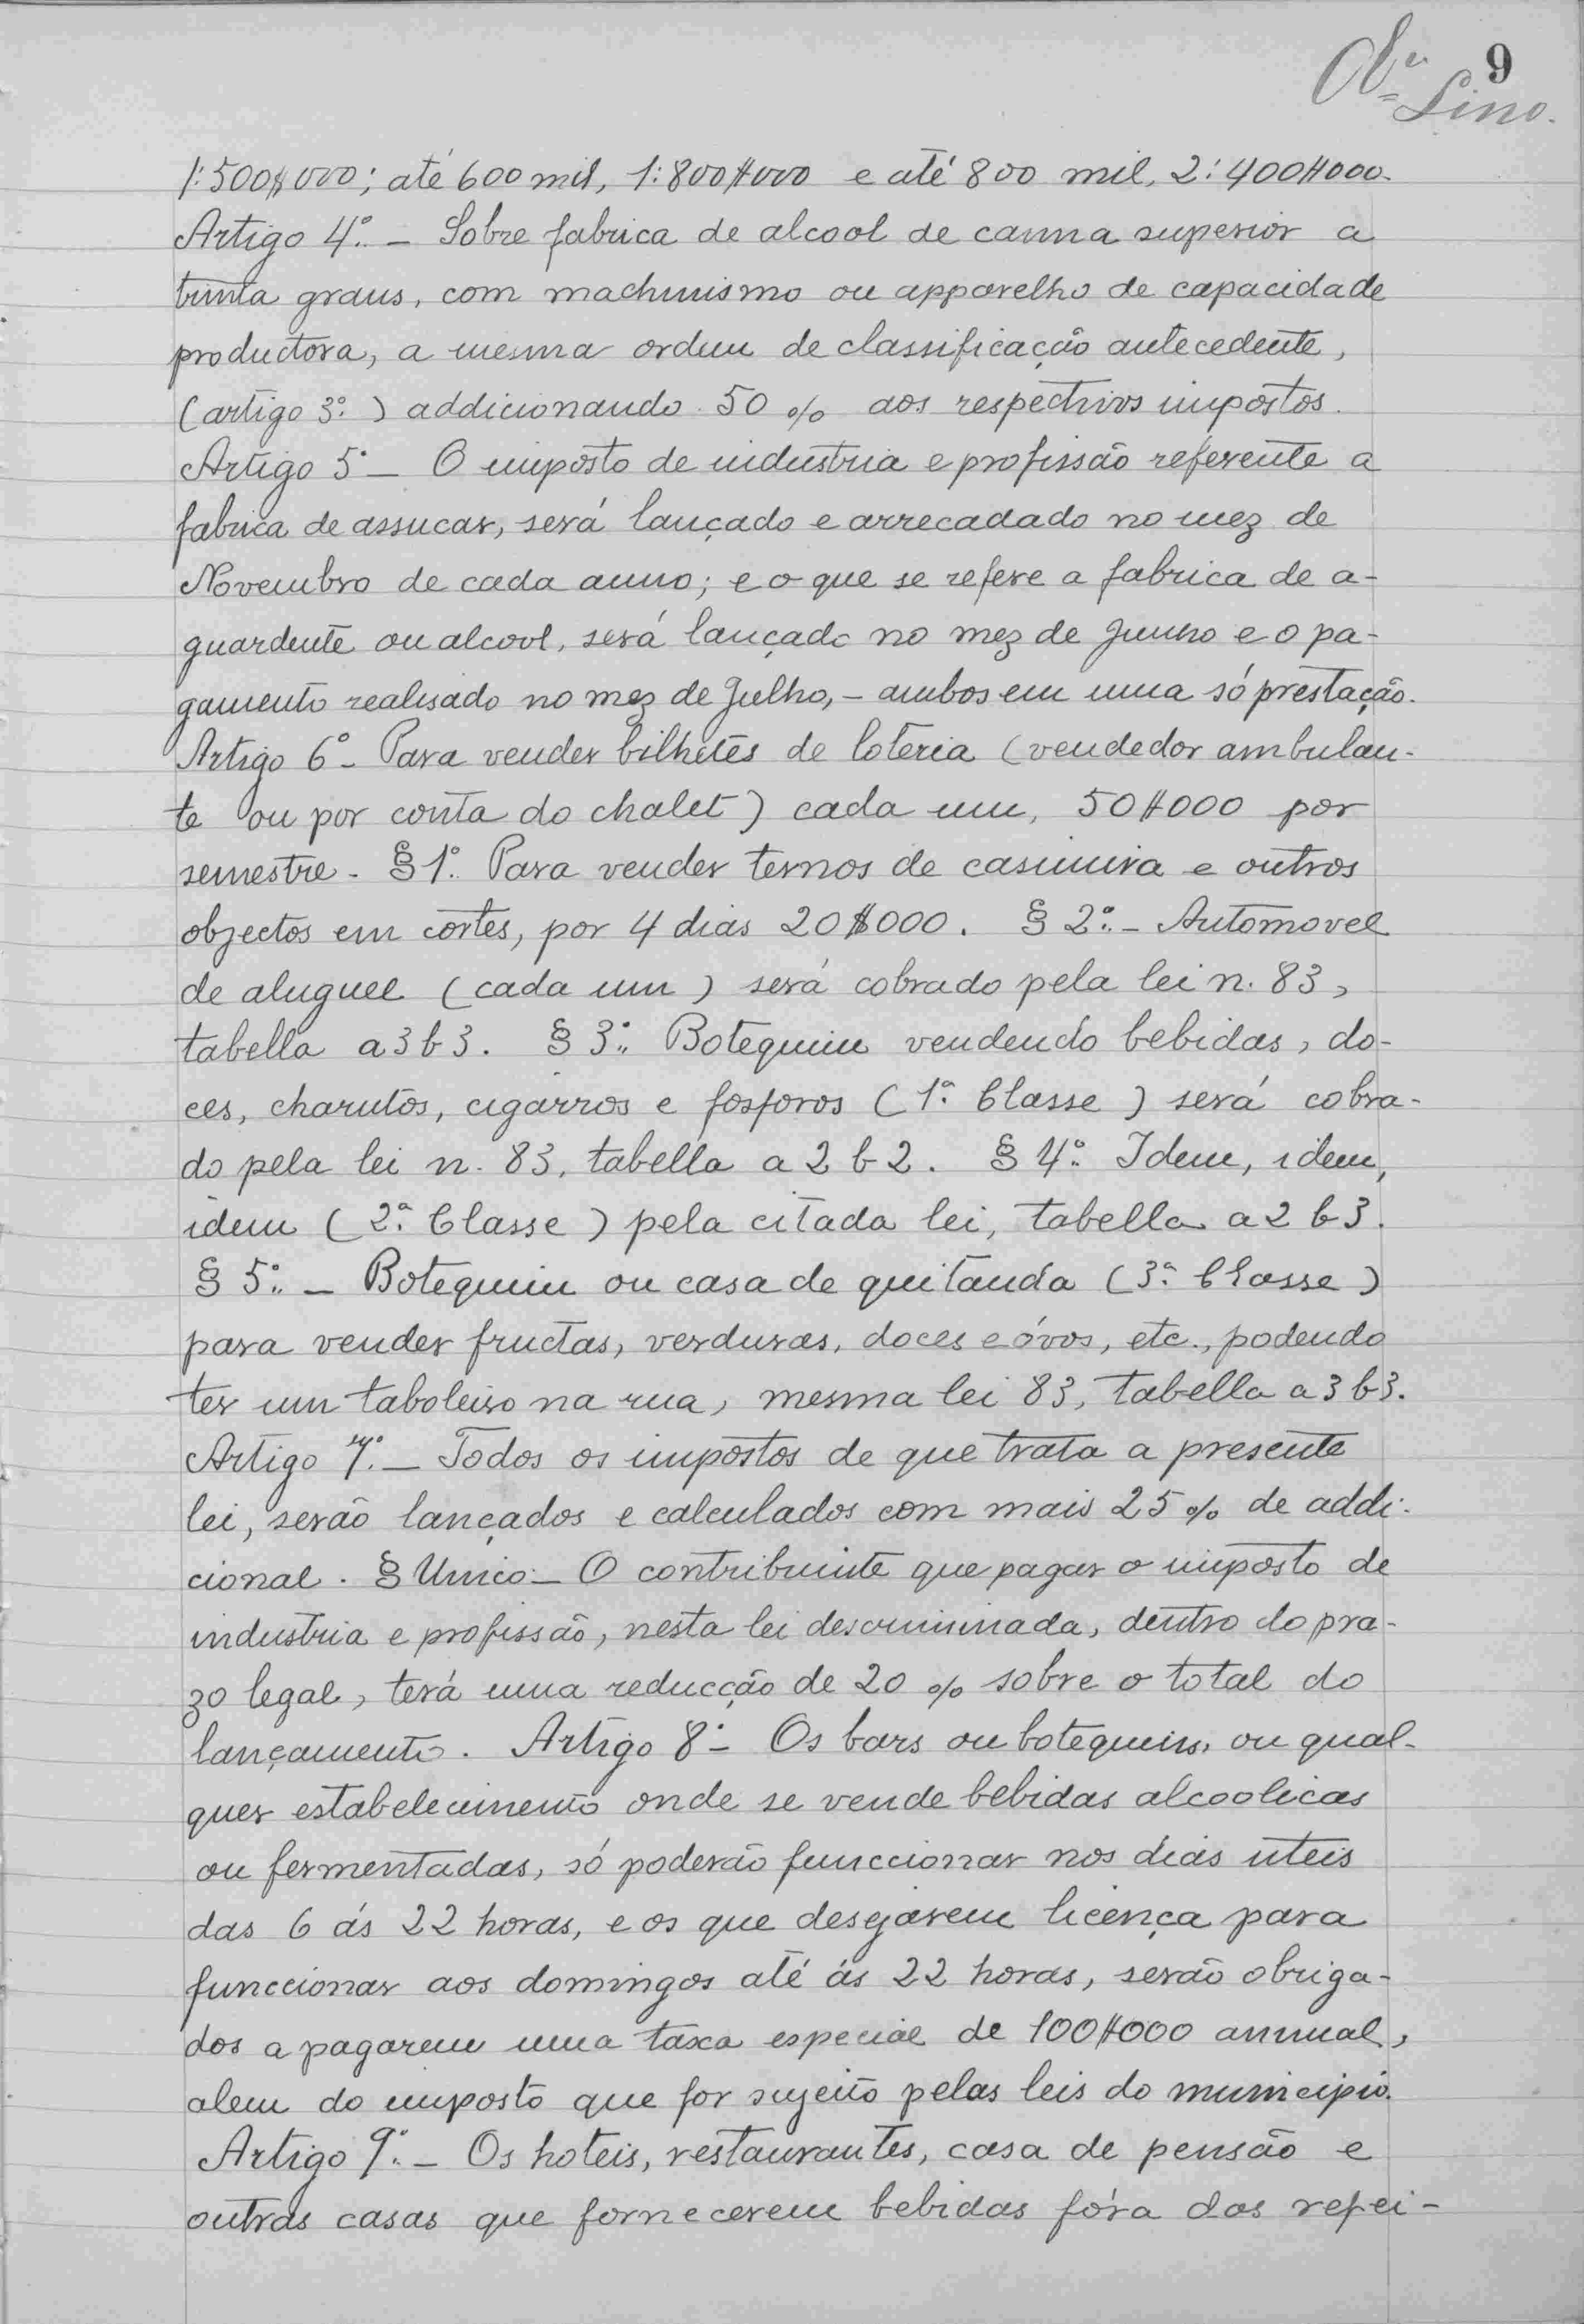 9
Lino.
1:500$000; até 600 mil, 1:800$000 e até 800 mil, 2:400$000.
Artigo 4º. - Sobre fabrica de alcool de canna superior a
trinta graus, com machinismo ou apparelho de capacidade
productora, a mesma ordem de classificação antecedente,
(artigo 3º.) addicionando 50 % aos respectivos impostos.
Artigo 5º - O imposto de industria e profissão referente a
fabrica de assucar, será lançado e arrecadado no mez de
Novembro de cada anno; e o que se refere a fabrica de a-
guardente ou alcool, será lançado no mez de Junho e o pa-
gamento realisado no mez de Julho, - ambos em uma só prestação.
Artigo 6º - Para vender bilhetes de loteria (vendedor ambulan-
te ou por conta do chalet) cada um, 50$000 por
semestre. § 1º. Para vender ternos de casimira e outros
objectos em cortes, por 4 dias 20$000. § 2º. - Automovel
de aluguel (cada um) será cobrado pela lei n. 83,
tabella a 3 b 3. § 3º. Botequim vendendo bebidas, do-
ces, charutos, cigarros e fosforos (1ª. Classe) será cobra-
do pela lei n. 83, tabella a 2 b 2. § 4º. Idem, idem,
idem (2ª. Classe) pela citada lei, tabella a 2 b 3.
§ 5º. - Botequim ou casa de quitanda (3ª. Classe)
para vender fructas, verduras, doces e óvos, etc., podendo
ter um taboleiro na rua, mesma lei 83, tabella a 3 b 3.
Artigo 7º. - Todos os impostos de que trata a presente
lei, serão lançados e calculados com mais 25 % de addi-
cional. § Unico - O contribuinte que pagar o imposto de
industria e profissão, nesta lei descriminada, dentro do pra-
zo legal, terá uma reducção de 20 % sobre o total do
lançamento. Artigo 8º - Os bars ou botequins, ou qual-
quer estabelecimento onde se vende bebidas alcoolicas
ou fermentadas, só poderão funccionar nos dias uteis
das 6 ás 22 horas, e os que desejarem licença para
funccionar aos domingos até ás 22 horas, serão obriga-
dos a pagarem uma taxa especial de 100$000 annual,
alem do imposto que for sujeito pelas leis do municipio.
Artigo 9º. - Os hoteis, restaurantes, casa de pensão e
outras casas que fornecerem bebidas fóra das refei-